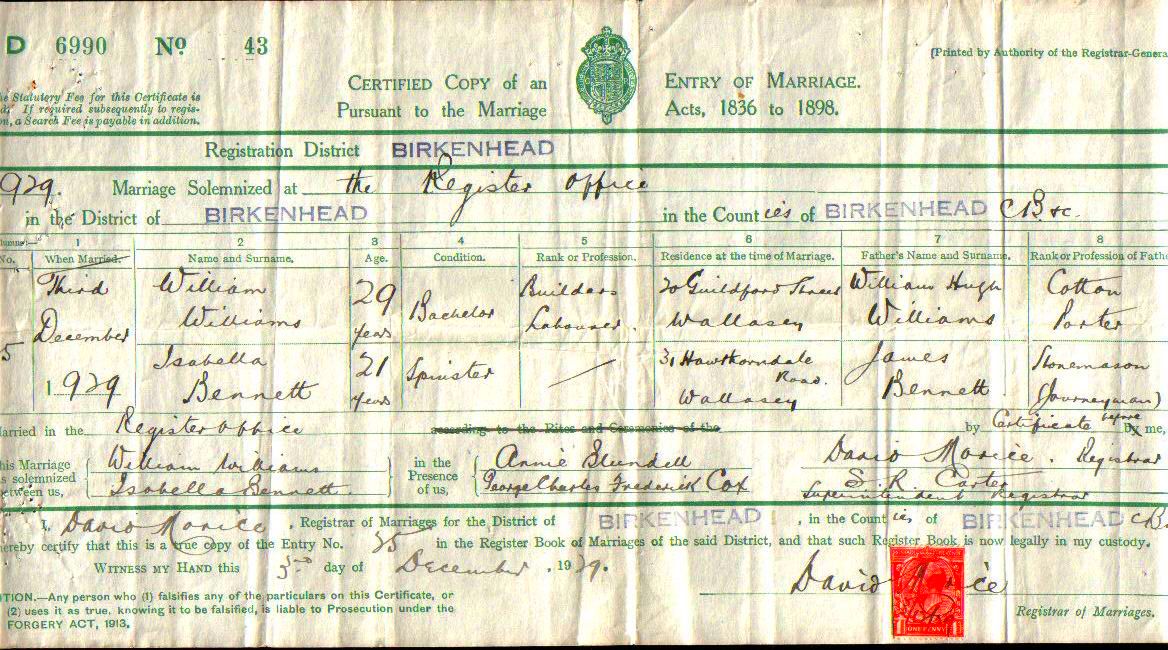 D 6990 No 43
[Printed by Authority of the Registrar-Genera
he Statutory Fee for this Certificate is
d. If required subsequently to regis-
on, a Search Fee is payable in addition.
CERTIFIED COPY of an ENTRY OF MARRIAGE.
Pursuant to the Marriage Acts, 1836 to 1898.
Registration District BIRKENHEAD
929. Marriage Solemnized at the Register Office
in the District of BIRKENHEAD in the Counties of BIRKENHEAD CB &c.
lumns:— 1 2 3 4 5 6 7 8
No. When Married. Name and Surname. Age. Condition. Rank or Profession. Residence at the time of Marriage. Father's Name and Surname. Rank or Profession of Fathe
Third William 29 Bachelor Builders 20 Guildford Street William Hugh Cotton
December Williams years Labourer. Wallasey Williams Porter
5 Isabella 21 Spinster 31 Hawthorndale James Stonemason
1929 Bennett years Road. Wallasey Bennett (Journeyman)
arried in the Register Office according to the Rites and Ceremonies of the by Certificate before by me,
his Marriage William Williams in the Annie Blundell David Morice. Registrar
s solemnized Presence S. R. Carter
etween us, Isabella Bennett of us, George Charles Frederick Cox Superintendent Registrar
I, David Morice, Registrar of Marriages for the District of BIRKENHEAD, in the Counties of BIRKENHEAD CB.
ereby certify that this is a true copy of the Entry No. 35 in the Register Book of Marriages of the said District, and that such Register Book is now legally in my custody.
WITNESS MY HAND this 3rd day of December, 1929.
David Morice
TION.—Any person who (1) falsifies any of the particulars on this Certificate, or
(2) uses it as true, knowing it to be falsified, is liable to Prosecution under the
FORGERY ACT, 1913.
Registrar of Marriages.
ONE PENNY